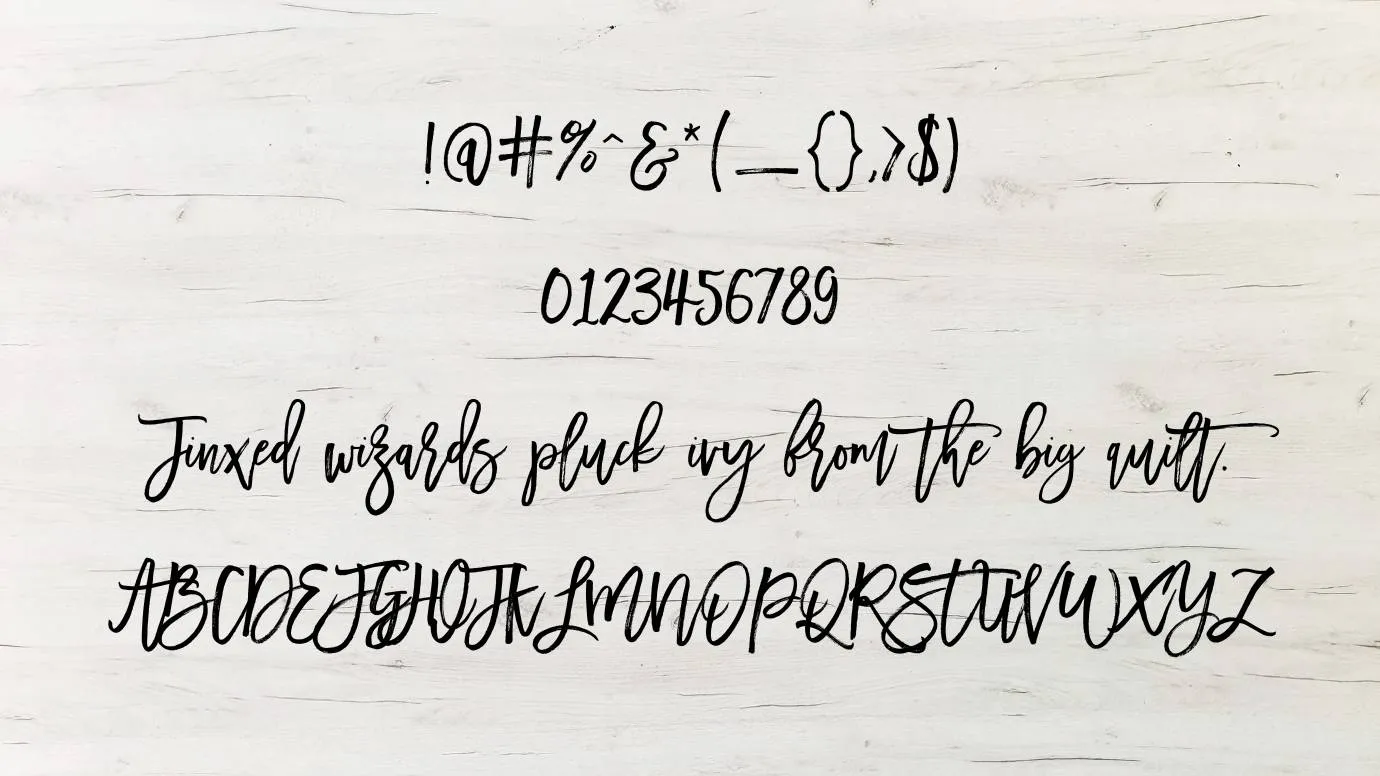 !@#%^&*(_{},>$)
0123456789
Jinxed wizards pluck ivy from the big quilt.
ABCDEFGHIJKLMNOPQRSTUVWXYZ